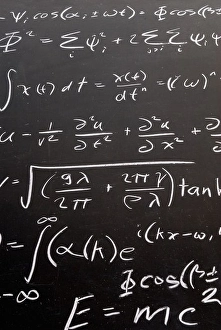 - Ψᵢ cos(αᵢ ± ωt) = Φ cos((
Φ² = Σᵢ Ψᵢ² + 2 Σⱼ>ᵢ Σᵢ Ψᵢ Ψ
∫ x(t) dt = x(t)/dtⁿ = (iω)ⁿ
u - 1/v² ∂²u/∂t² + ∂²u/∂x² + ∂
= √((gλ/2π + 2πγ/ρλ) tanh
) = ∫_{-∞}^{∞} (α(k)e i(kx-ω,
Φ cos((
E = mc²